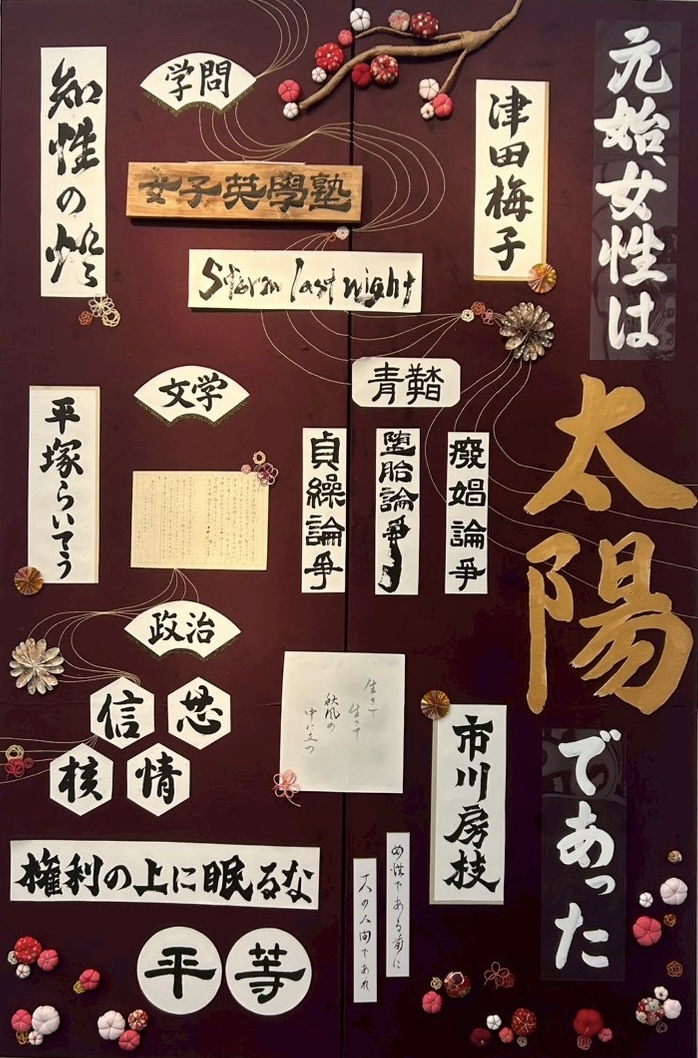 元始、女性は
太陽
であった
津田梅子
学問
知性の燈
女子英學塾
Storm last night
青鞜
文学
平塚らいてう
癈娼論爭
堕胎論爭
貞操論爭
政治
信
核
情
生きて
生きて
秋風の
中に立つ
市川房枝
権利の上に眠るな
女性である前に
一人の人間であれ
平等